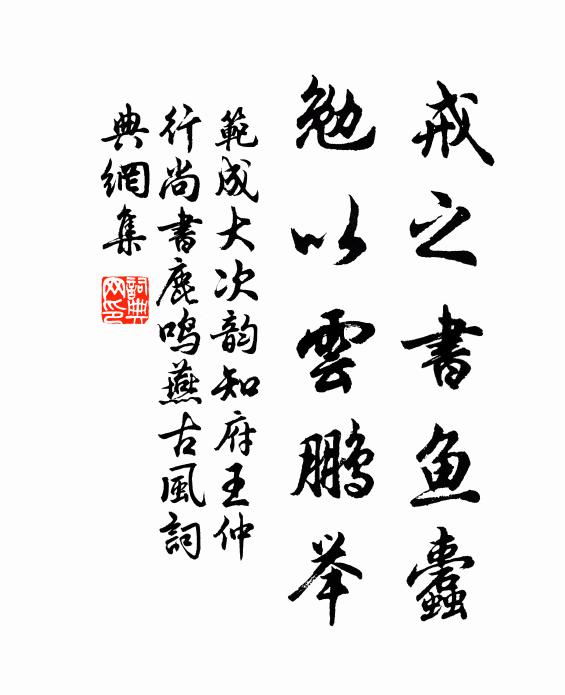 戒之書鱼蠹
勉以雲鹏举
範成大次韵知府王仲
行尚書鹿鸣燕古風詞
典網集
詞典
网印